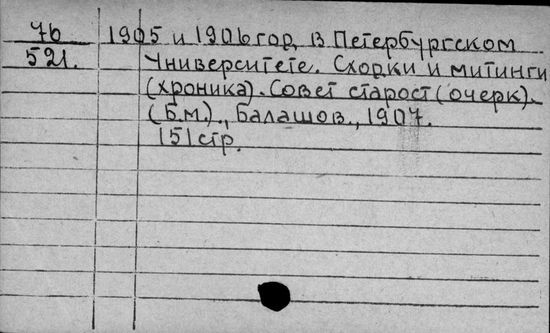 7б 1905 и 1906 год в Петербургском
521. Университете. Сходки и митинги
(хроника). Совет старост (очерк).
(Б.м.)., Балашов., 1907.
151 стр.